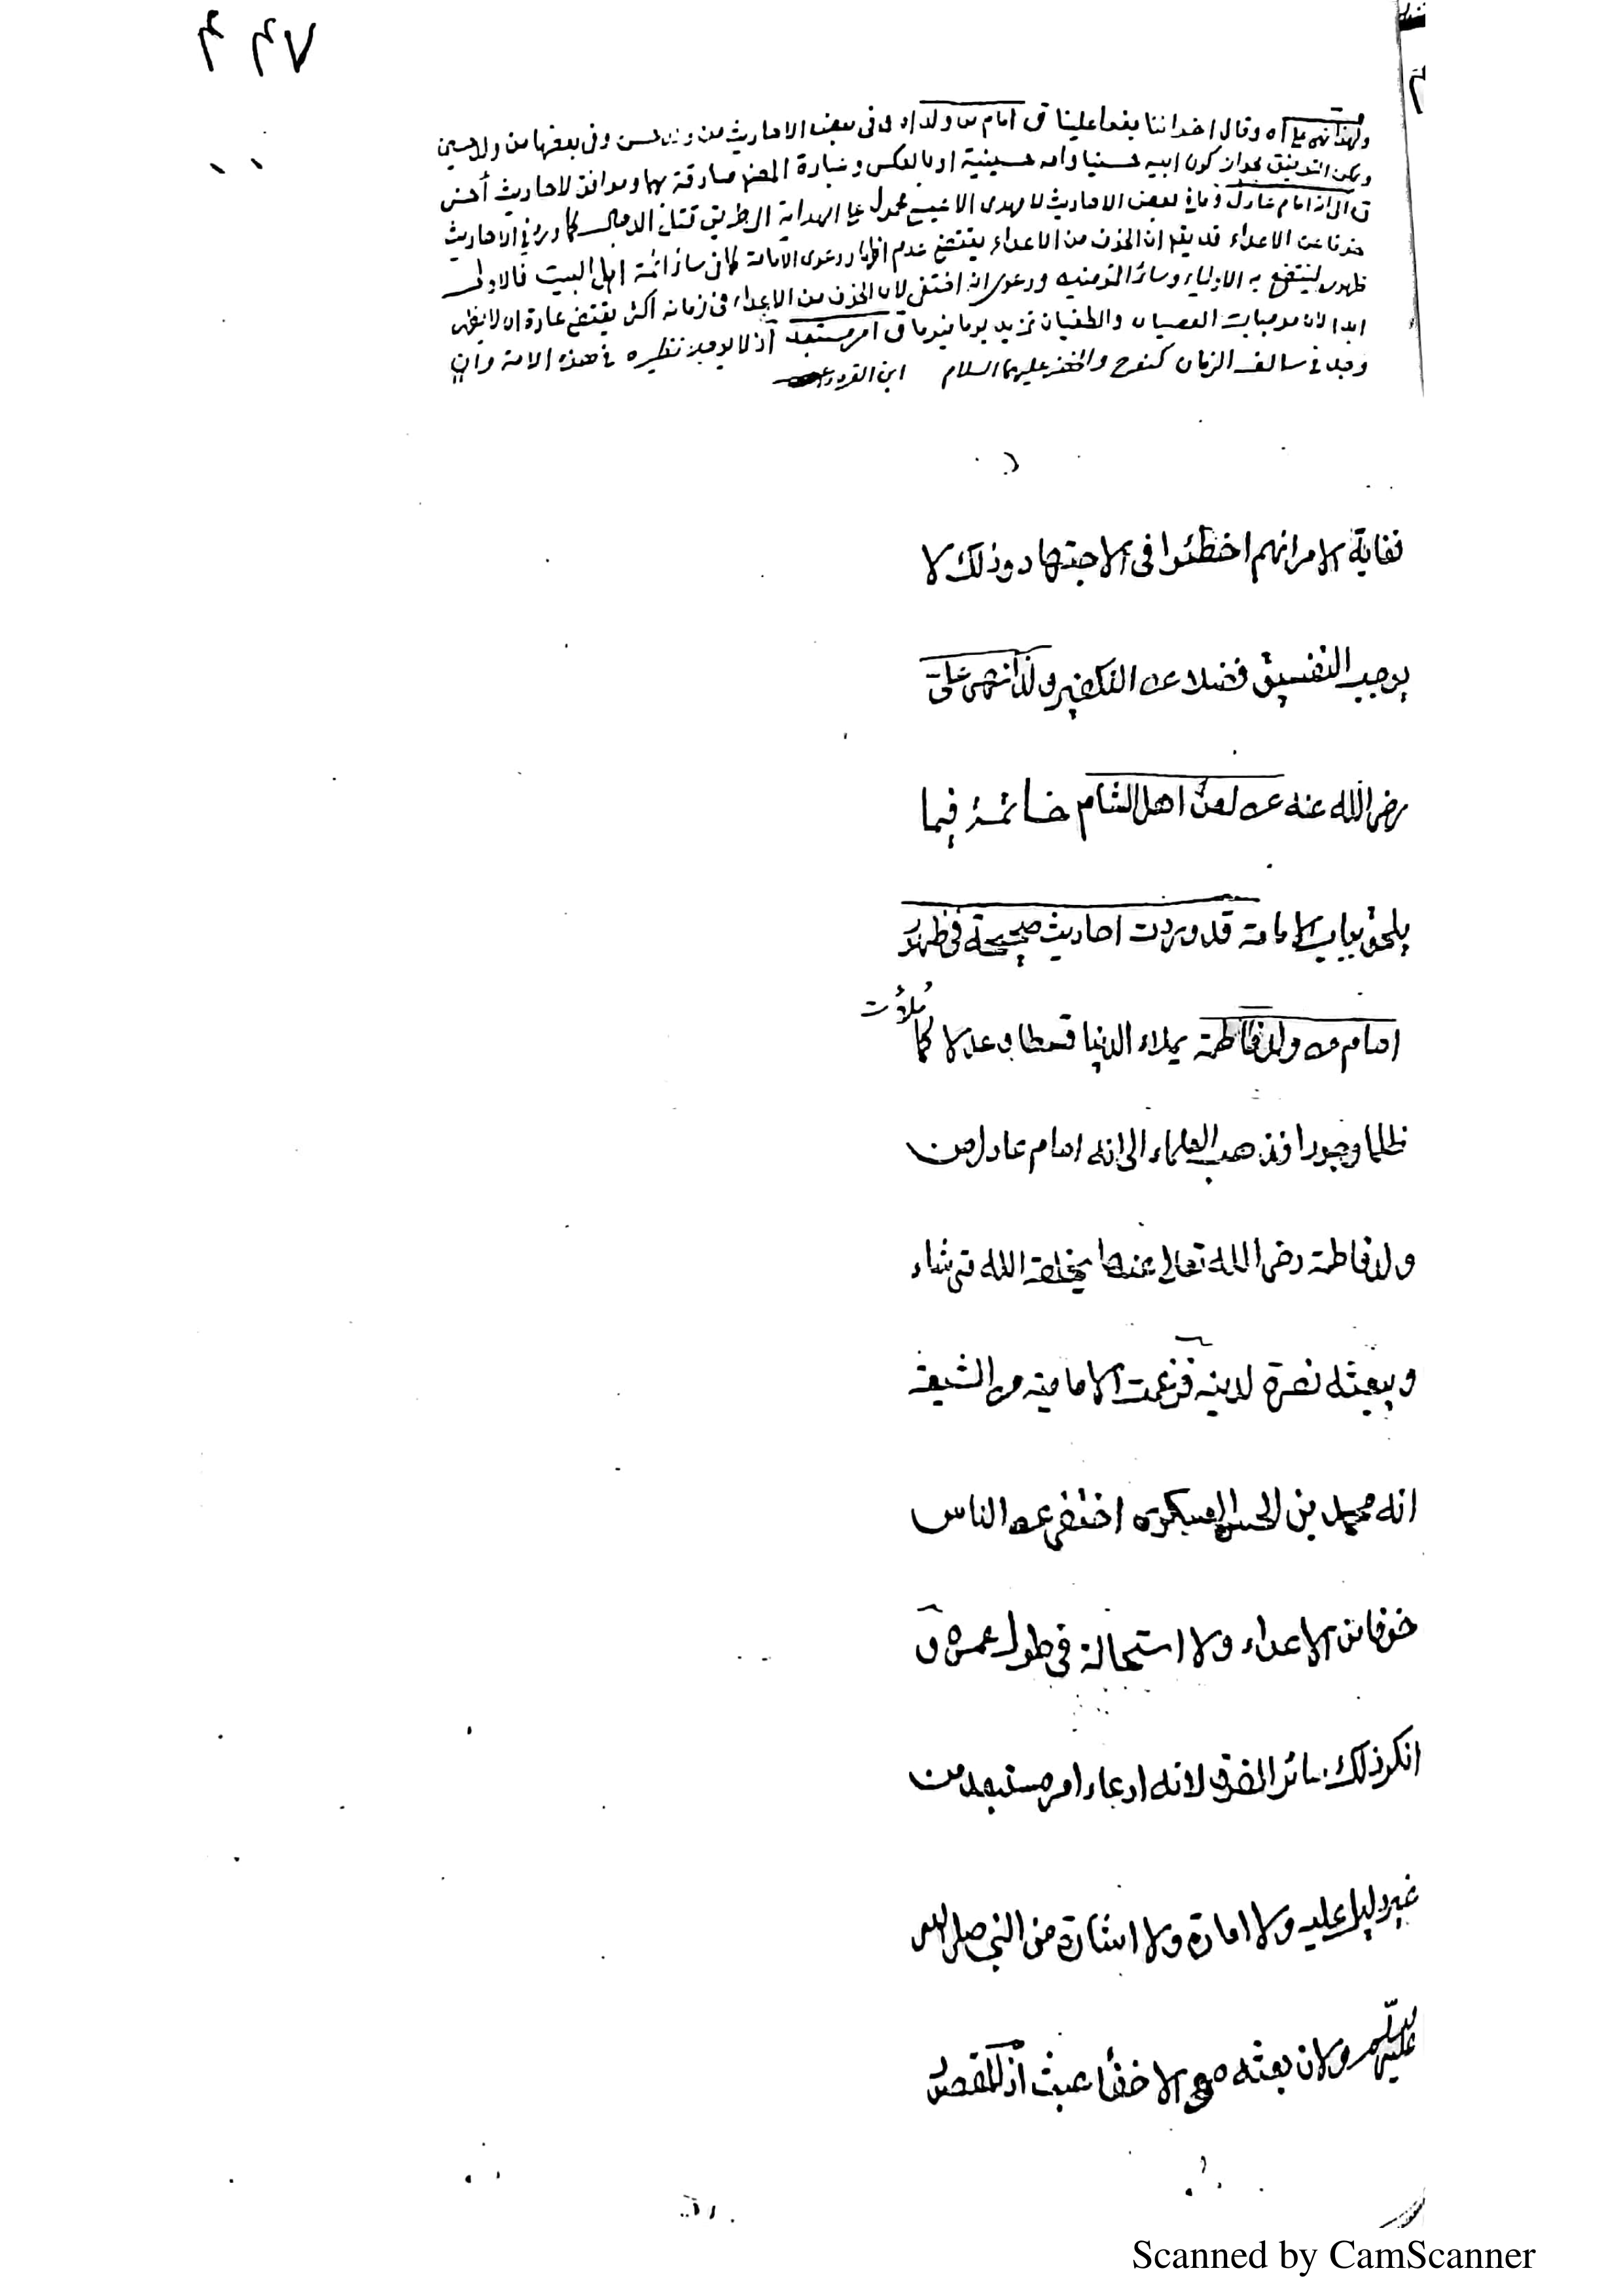 ٤٤٧
ولهذا نهى على اه وقال اخواننا بغوا علينا ق امام من ولد اه وفى بعض الاحاديث من ولد حسن وفى بعضها من ولد حسين
ويمكن التوفيق بجواز كون ابيه حسنيا وامه حسينية او بالعكس وعبارة المصنف صادقة بهما وموافق لاحاديث أخر
ق الى انه امام عادل وما فى بعض الاحاديث لا مهدى الا عيسى محمول على الهداية الى طريق قتل الدجال كما ورد فى الاحاديث
خوفا من الاعداء قد يقال ان الخوف من الاعداء يقتضى عدم اظهار دعوى الامامة كما فى سائر ائمة اهل البيت فالاولى
ظهوره لينتفع به الاولياء وسائر المؤمنين ودعوى انه اختفى لان الخوف من الاعداء فى زمانه اكثر يقتضى عادة ان لا يظهر
ابدا لان موجبات العصيان والطغيان تزيد يوما فيوما ق امر مستبعد اذ لا يوجد نظيره فى هذه الامة وان
وجد فى سالف الزمان كنوح والخضر عليهما السلام ابن القره
فغاية الامر انهم اخطئوا فى الاجتهاد وذلك لا
يوجب التفسيق فضلا عن التكفير ولذا نهى على ق
رضى الله عنه عن لعن اهل الشام خاتمة فيما
يلحق بباب الامامة قد وردت احاديث صحيحة فى ظهور
امام من ولد فاطمة يملاء الدنيا قسطا وعدلا كما ملأت
ظلما وجورا فذهب العلماء الى انه امام عادل من
ولد فاطمة رضى الله تعالى عنها يخلقه الله متى شاء
ويبعثه نصرة لدينه فزعمت الامامية من الشيعة
انه محمد بن الحسن العسكرى اختفى عن الناس
خوفا من الاعداء ولا استحالة فى طول عمره ق
انكر ذلك سائر الفرق لانه ادعاء امر مستبعد من
غير دليل عليه ولا امارة ولا اشارة من النبى صلى الله
عليه وسلم ولان بعثه مع الاخفاء عبث اذ المقصود
Scanned by CamScanner